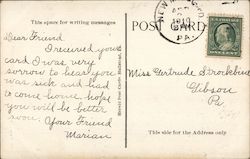 This space for writing messages
POST CARD
NEW
1910
PA.
Dear Friend
I received your
card I was very
sorrow to hear you
was sick and had
to come home. hope
you will be better
now. Your Friend
Marian
Miss Gertrude
Gibson
Pa
This side for the Address only